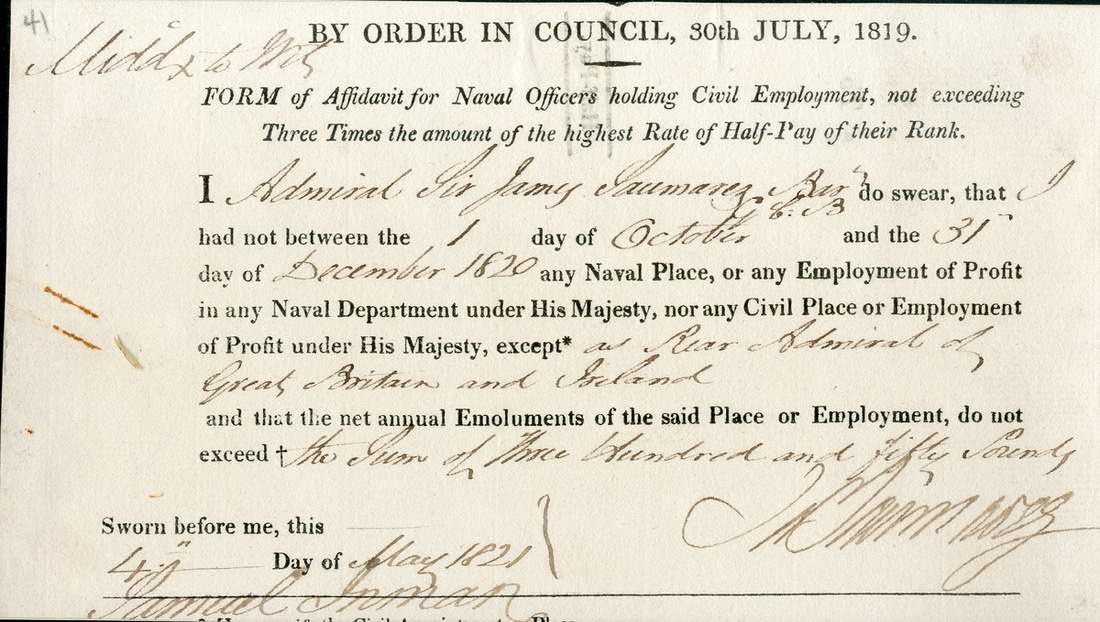 41
BY ORDER IN COUNCIL, 30th JULY, 1819.
Middx to Wit
FORM of Affidavit for Naval Officers holding Civil Employment, not exceeding
Three Times the amount of the highest Rate of Half-Pay of their Rank.
I Admiral Sir James Saumarez Bart do swear, that I
G.C.B
had not between the 1 day of October and the 31
day of December 1820 any Naval Place, or any Employment of Profit
in any Naval Department under His Majesty, nor any Civil Place or Employment
of Profit under His Majesty, except* as Rear Admiral of
Great Britain and Ireland
and that the net annual Emoluments of the said Place or Employment, do not
exceed † the Sum of Three Hundred and fifty Pounds
Js Saumarez
Sworn before me, this
4th Day of May 1821
Samuel Inman